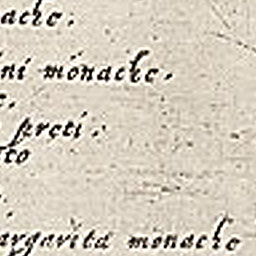 ache.
ini monache.
e.
preti.
tto
argarita monache